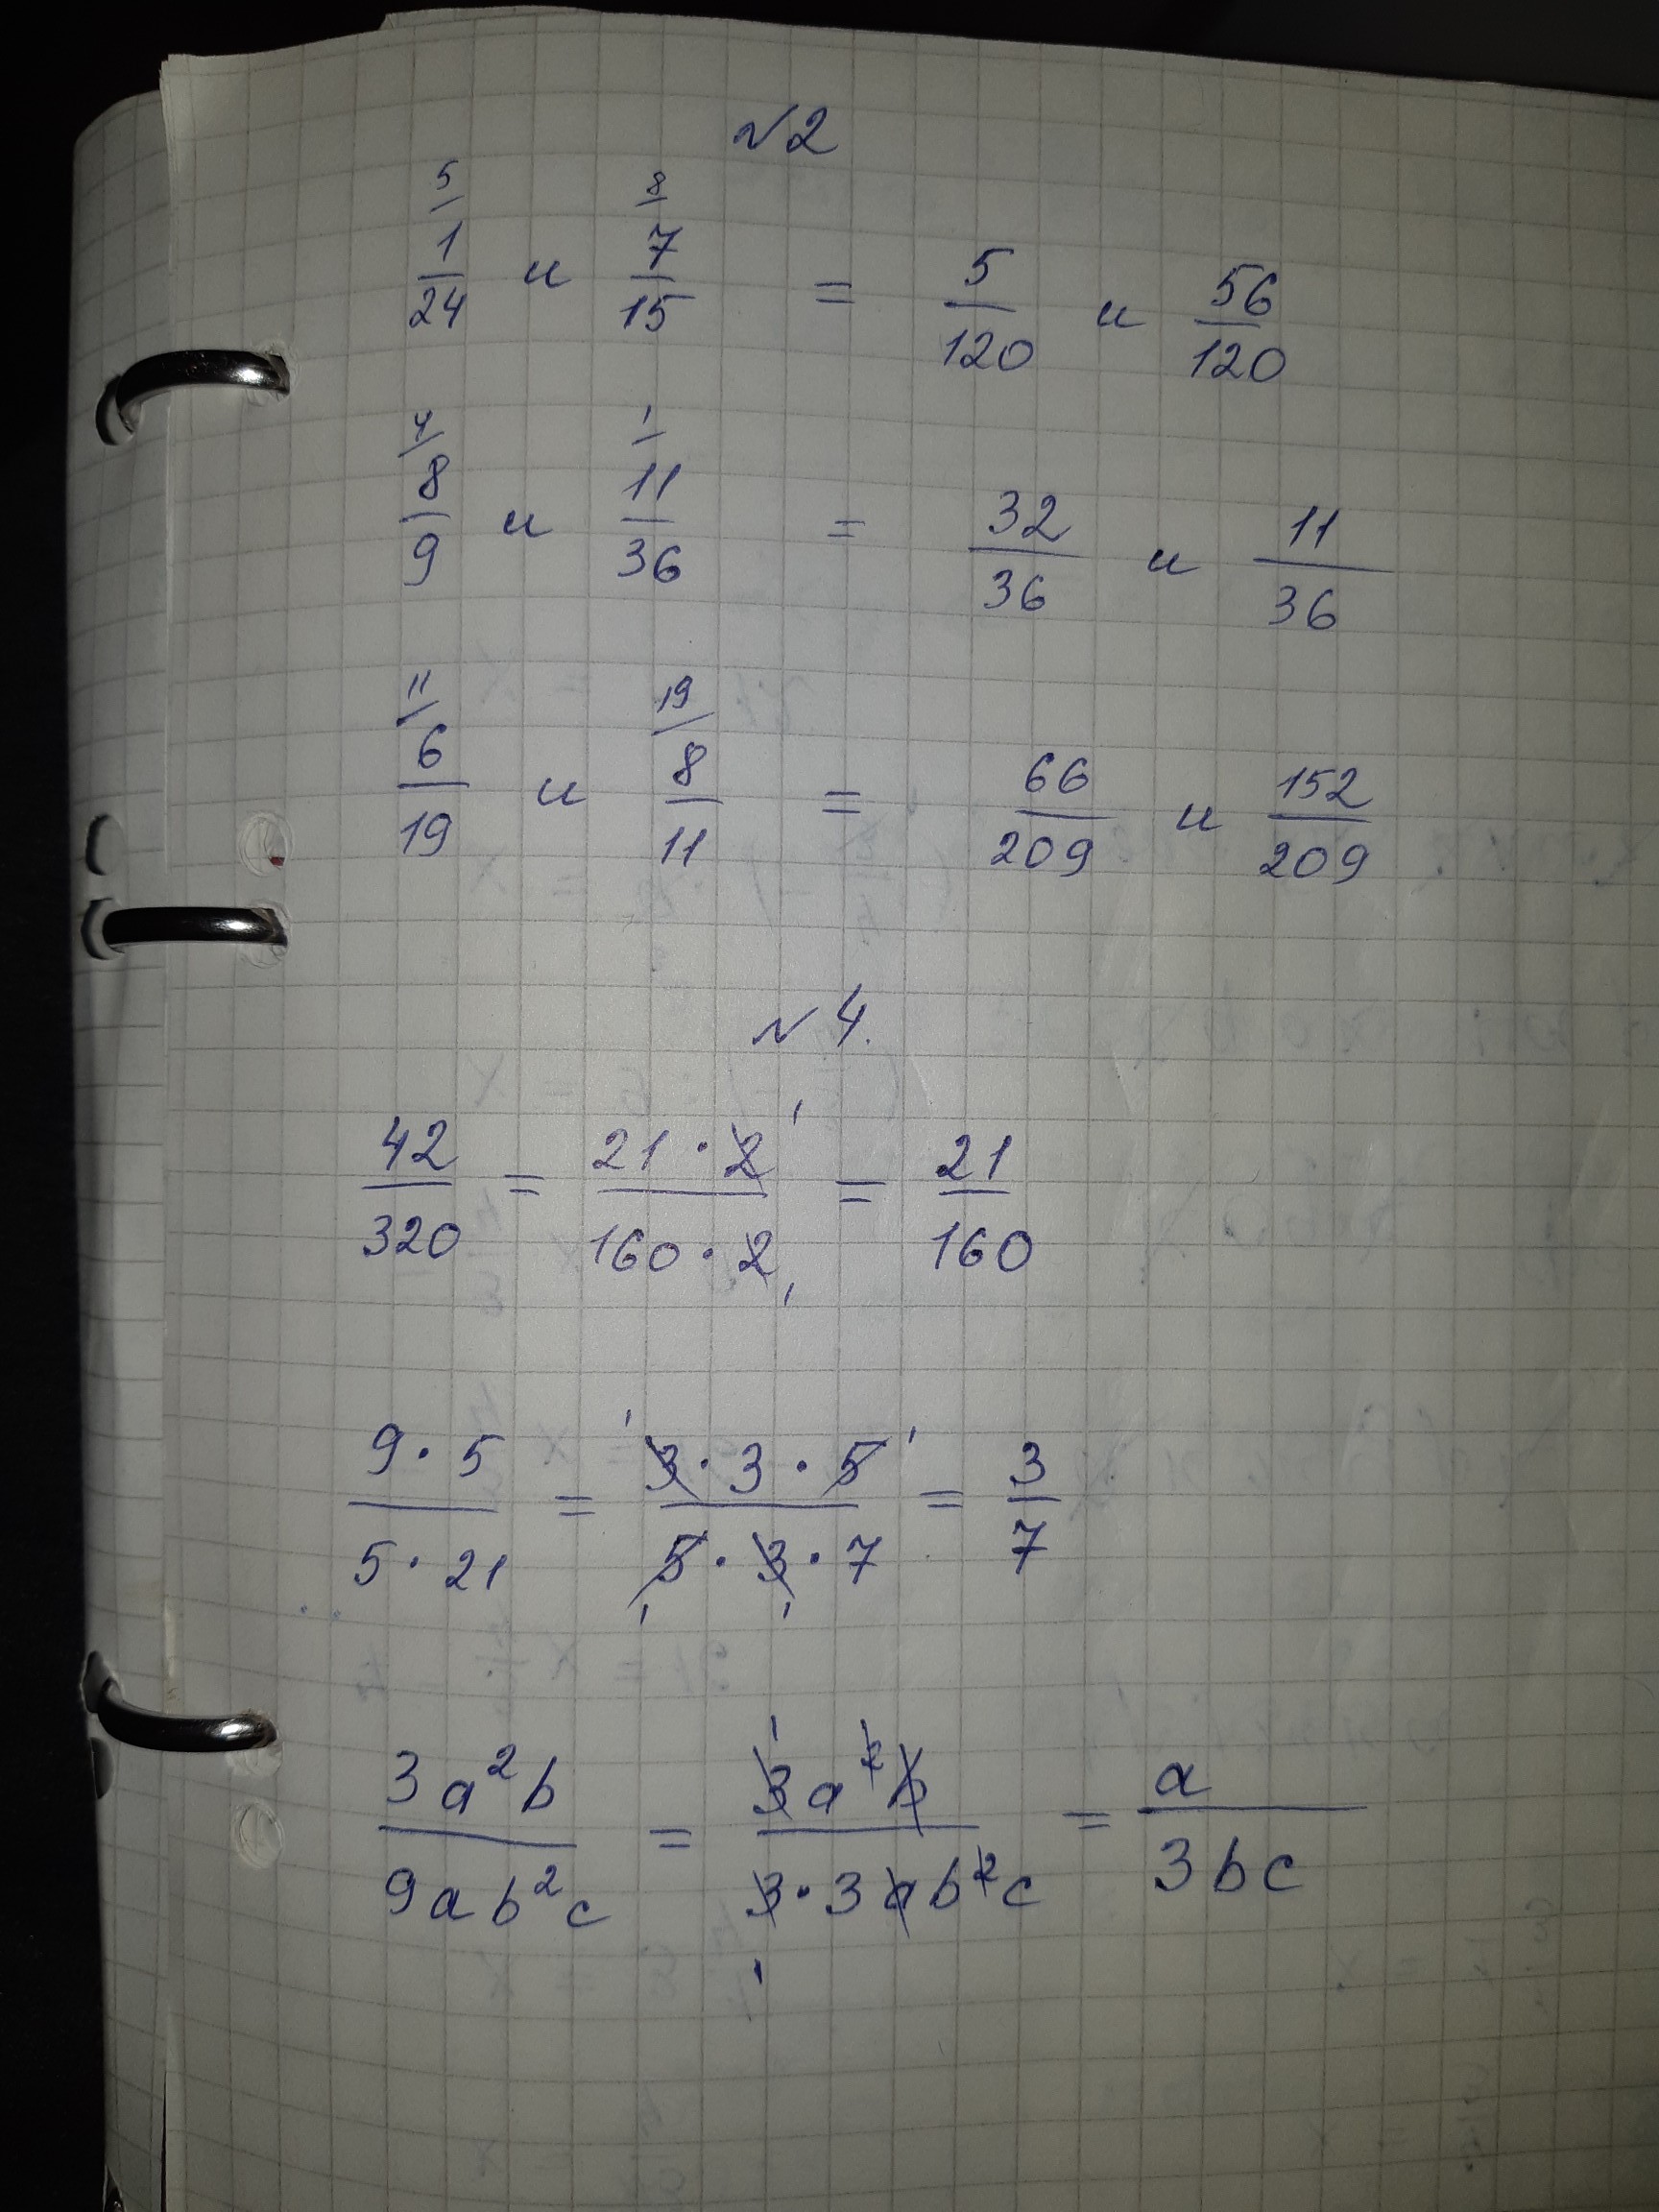 №2
5/ 8/
1/24 и 7/15 = 5/120 и 56/120
4/ 1/
8/9 и 11/36 = 32/36 и 11/36
11/ 19/
6/19 и 8/11 = 66/209 и 152/209
№4.
42/320 = 21·2/160·2 = 21/160
9·5/5·21 = 3·3·5/5·3·7 = 3/7
3a²b/9ab²c = 3a²b/3·3ab²c = a/3bc